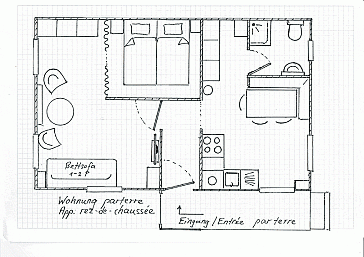 Bettsofa
1-2 P
Wohnung parterre
App. rez-de-chaussée
Eingang/Entrée parterre